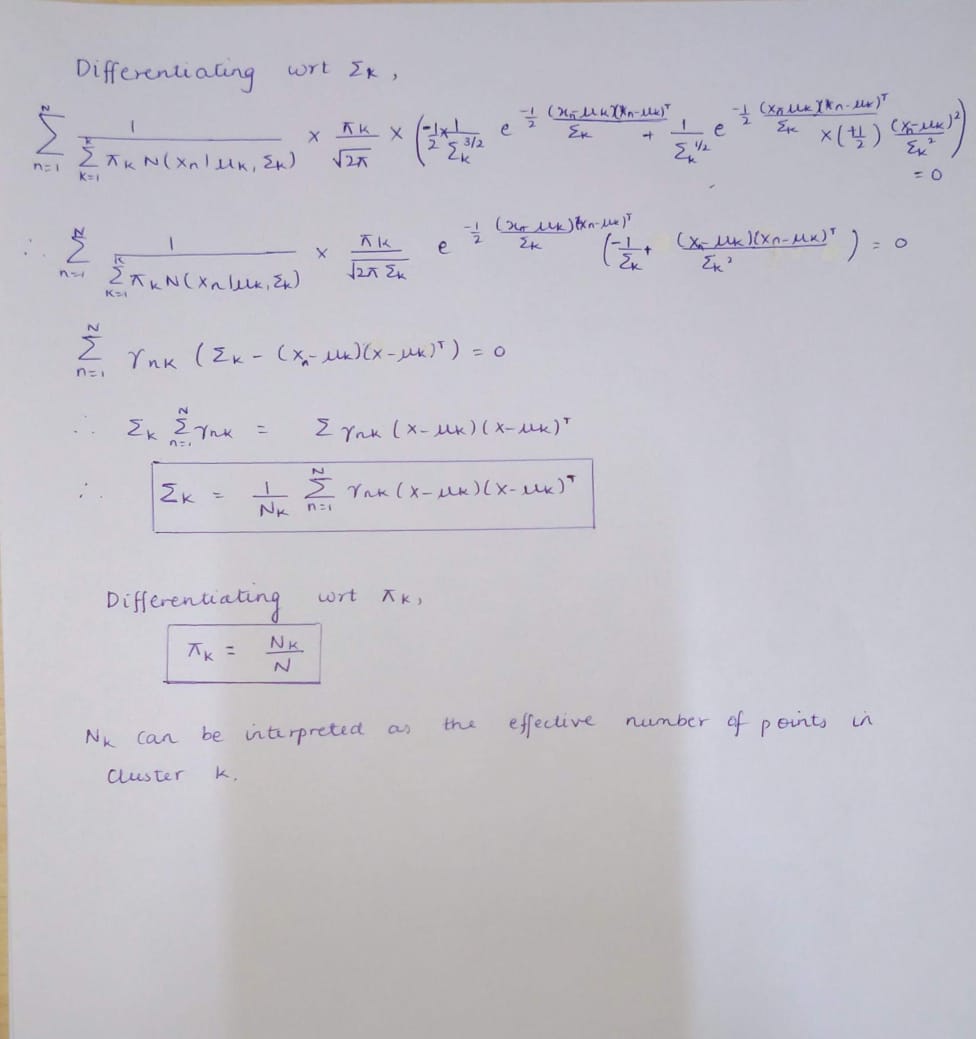 Differentiating wrt Σk,
N Σ n=1 1 / (k Σ k=1 πk N(xn | μk, Σk)) × πk / √2π × (-1/2 × 1/Σk^3/2 e^(-1/2 (xn-μk)(xn-μk)^T / Σk) + 1/Σk^1/2 e^(-1/2 (xn-μk)(xn-μk)^T / Σk) × (+1/2) (xn-μk)^2 / Σk^2)
= 0
∴ N Σ n=1 1 / (K Σ K=1 πk N(xn | μk, Σk)) × πk / √2π Σk e^(-1/2 (xn-μk)(xn-μk)^T / Σk) (-1/Σk + (xn-μk)(xn-μk)^T / Σk^2) = 0
N Σ n=1 γnk (Σk - (xn-μk)(x-μk)^T) = 0
∴ Σk N Σ n=1 γnk = Σ γnk (x-μk)(x-μk)^T
∴ Σk = 1/Nk N Σ n=1 γnk (x-μk)(x-μk)^T
Differentiating wrt πk,
πk = Nk / N
Nk can be interpreted as the effective number of points in
cluster k.